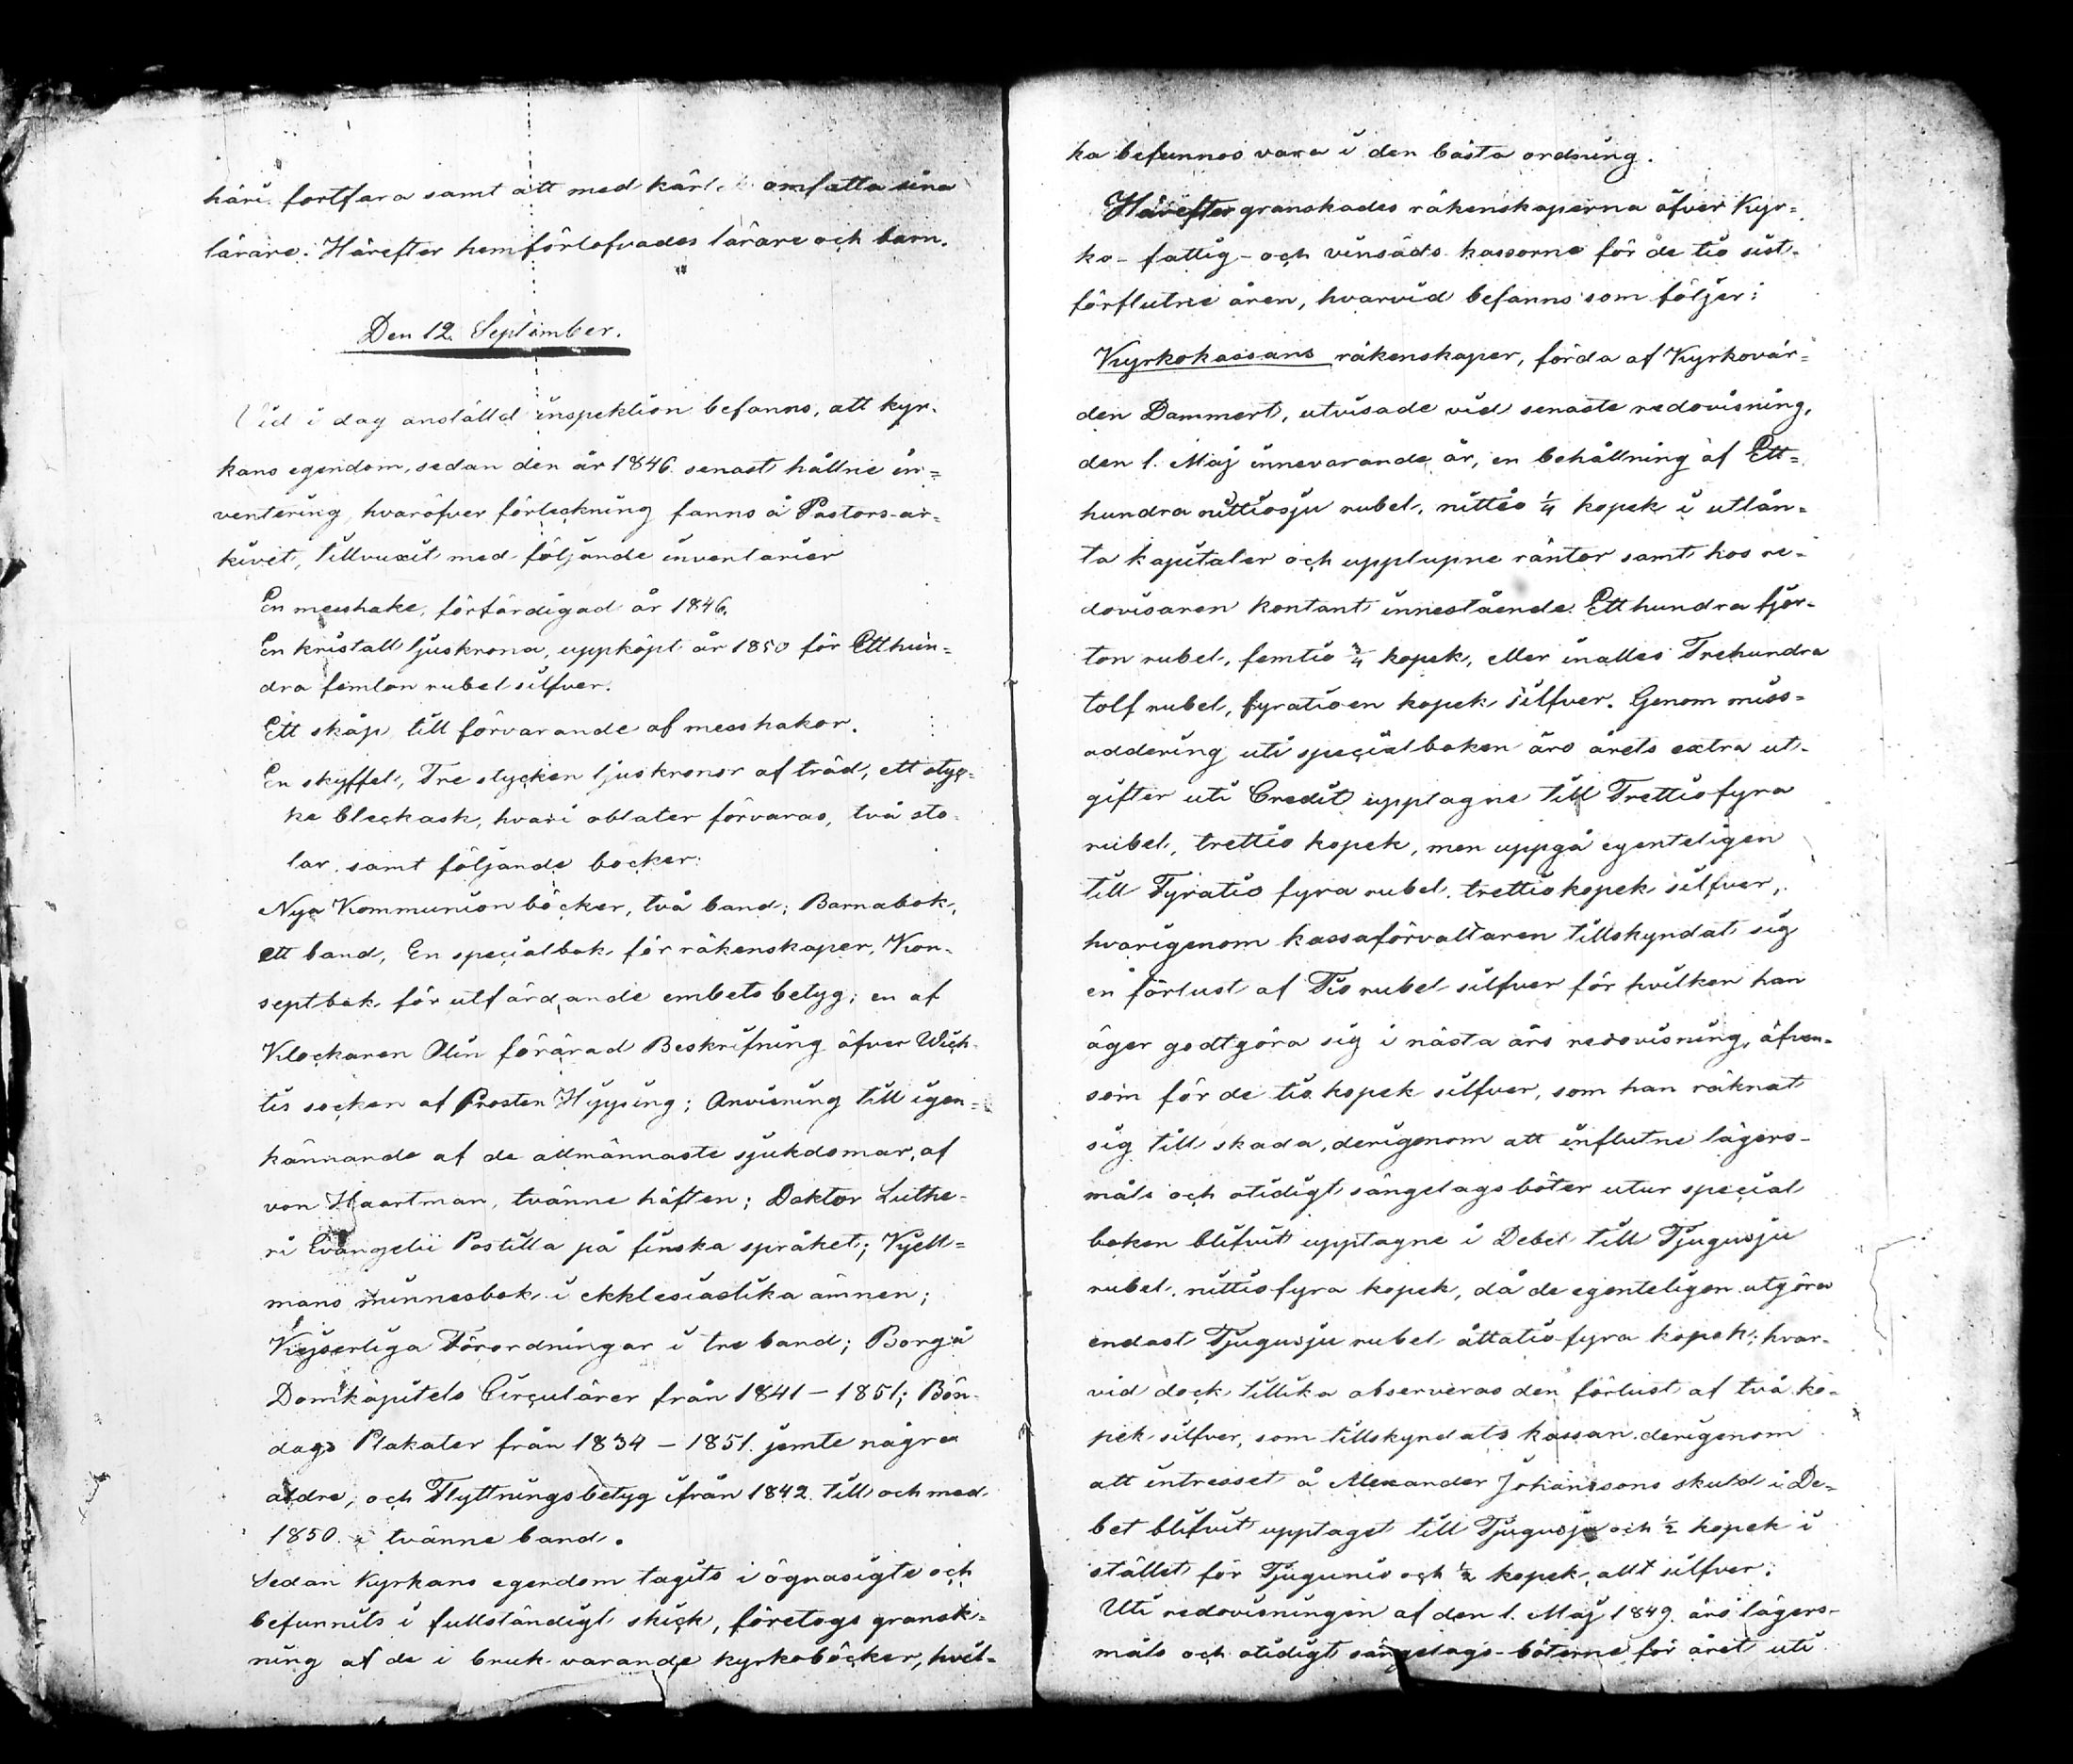 häri fortfara samt att med kärl omfatta sina
lärare. Härefter hemförlofvades lärare och barn.
Den 12. September.
Vid i dag anställd inspektion befanns, att kyr-
kans egendom, sedan den år 1846 senast hållne in=
ventering, hvaröfver förteckning fanns å Pastors-ar-
kivet, tillvuxit med följande inventarier
En messhake, förfärdigad år 1846.
En kristall ljuskrona, uppköpt år 1850 för Etthun=
dra femton rubel silfver.
Ett skåp till förvarande af messhakor.
En skyffel, Tre stycken ljuskronor af träd, ett styc-
ke bleckask, hvari oblater förvaras, två sto-
lar samt följande böcker:
Nya Kommunion böcker, två band; Barnabok,
ett band, En specialbok för räkenskaper, Kon-
septbok för utfärdande embetsbetyg; en af
Klockaren Olin förärad Beskrifning öfver Wich-
tis socken af Prosten Hipping; Anvisning till igen=
kännande af de allmännaste sjukdomar, af
von Haartman, tvänne häften; Doktor Luthe-
ri Evangelii Postilla på finska språket; Kjell=
mans minnesbok i ekklesiastika ämnen;
Kejserliga Förordningar i tre band; Borgå
Domkapitels Circulärer från 1841 - 1851; Bön-
dags Plakater från 1834 - 1851. jemte några
äldre, och Flyttningsbetyg ifrån 1842 till och med
1850 i tvänne band.
Sedan Kyrkans egendom tagits i ögnasigte och
befunnits i fullständigt skick, företogs gransk=
ning af de i bruk varande kyrkoböcker, hvil=
ka befunnos vara i den bästa ordning.
Härefter granskades räkenskaperna öfver Kyr=
ko- fattig- och vinsäds kassorne för de tio sist-
förflutne åren, hvarvid befanns som följer:
Kyrkokassans räkenskaper, förda af Kyrkovär=
den Dammert, utvisade vid senaste redovisning,
den 1. Maj innevarande år, en behållning af Ett=
hundra nittiosju rubel, nittio ¼ kopek i utlån-
ta kapitaler och upplupne räntor samt hos re-
dovisaren kontant innestående Ett hundra fjor-
ton rubel, femtio ¾ kopek, eller inalles Trehundra
tolf rubel, fyratioen kopek silfver. Genom miss=
addering uti specialboken äro årets extra ut-
gifter uti Credit upptagne till Trettiofyra
rubel, trettio kopek, men uppgå egenteligen
till Fyratio fyra rubel trettio kopek silfver,
hvarigenom kassaförvaltaren tillskyndat sig
en förlust af Tio rubel silfver för hvilken han
äger godtgöra sig i nästa års redovisning, äfven-
som för de tio kopek silfver, som han räknat
sig till skada, derigenom att influtne lägers-
måls och otidigt sängelags böter utur special
boken blifvit upptagne i Debet till Tjugusju
rubel nittiofyra kopek, då de egenteligen utgöra
endast Tjugusju rubel åttatio fyra kopek; hvar-
vid dock tillika observeras den förlust af två ko-
pek silfver, som tillskyndats kassan derigenom
att intresset å Alexander Johanssons skuld i De-
bet blifvit upptaget till Tjugusju och ½ kopek i
stället för Tjugunio och ½ kopek, allt silfver.
Uti redovisningen af den 1. Maj 1849 äro lägers-
måls och otidigt sängelags-böterne för året uti